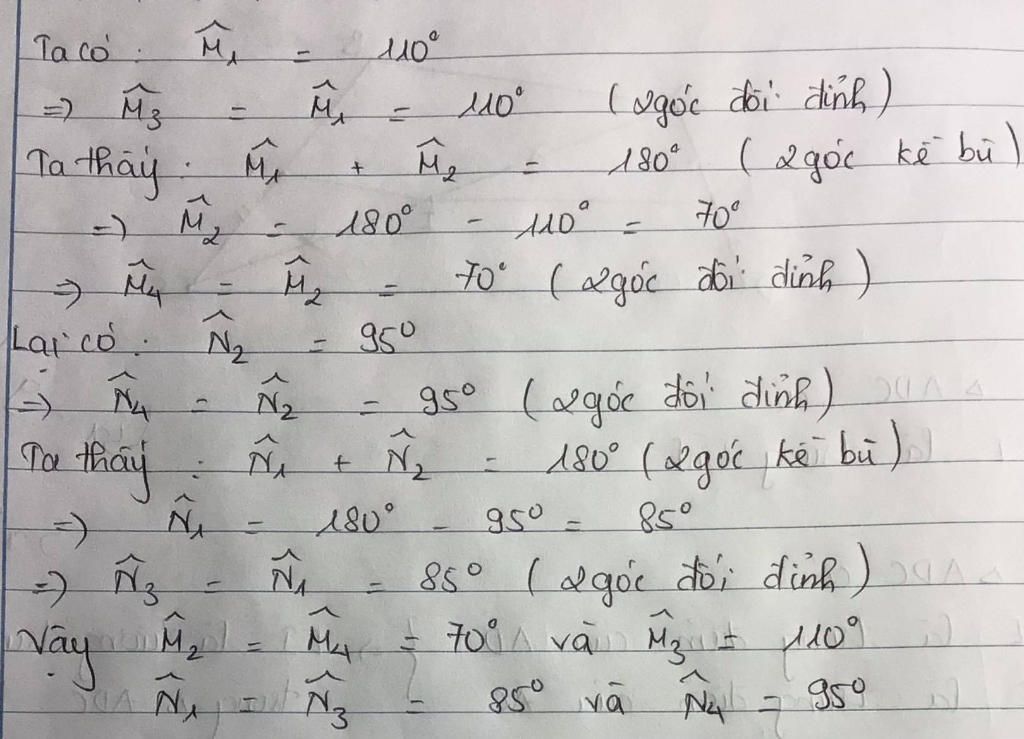 Ta có : M̂₁ = 110°
=> M̂₃ = M̂₁ = 110° (2 góc đối đỉnh)
Ta thấy : M̂₁ + M̂₂ = 180° (2 góc kề bù)
=> M̂₂ = 180° - 110° = 70°
=> M̂₄ = M̂₂ = 70° (2 góc đối đỉnh)
Lại có : N̂₂ = 95°
=> N̂₄ = N̂₂ = 95° (2 góc đối đỉnh)
Ta thấy : N̂₁ + N̂₂ = 180° (2 góc kề bù)
=> N̂₁ = 180° - 95° = 85°
=> N̂₃ = N̂₁ = 85° (2 góc đối đỉnh)
Vậy M̂₂ = M̂₄ = 70° và M̂₃ = 110°
N̂₁ = N̂₃ = 85° và N̂₄ = 95°